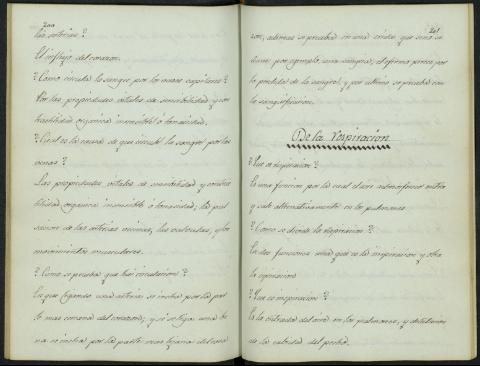 200
las arterias?
El influjo del corazon.
? Como circula la sangre por los vasos capilares?
Por las propiedades vitales de sensibilidad y con
tractilidad organica insensible ó tonicidad.
? Cual es la causa de que circule la sangre por las
venas?
Las propiedades vitales de sensibilidad y contrac
tilidad organica insensible ó tonicidad; la pul
sacion de las arterias vecinas, las valvulas, y los
movimientos musculares.
? Como se prueba que hai circulacion?
En que ligando una arteria se incha por la par
te mas cercana del corazon; y si se liga una ve
na se incha por la parte mas lejana del cora
201
zon; ademas se prueba en una herida, que sino se
tiene por ejemplo, una sangria, el enfermo perece por
la perdida de la sangre; y por ultimo se prueba con
la sanguificacion.
De la respiracion
? Que es respiracion?
Es una funcion por la cual el aire admosferico entra
y sale alternativamente en los pulmones.
? Como se divide la respiracion?
En dos funciones una que es la inspiracion y otra
la espiracion
? Que es inspiracion?
Es la entrada del aire en los pulmones, y dilatacion
de la cabidad del pecho.